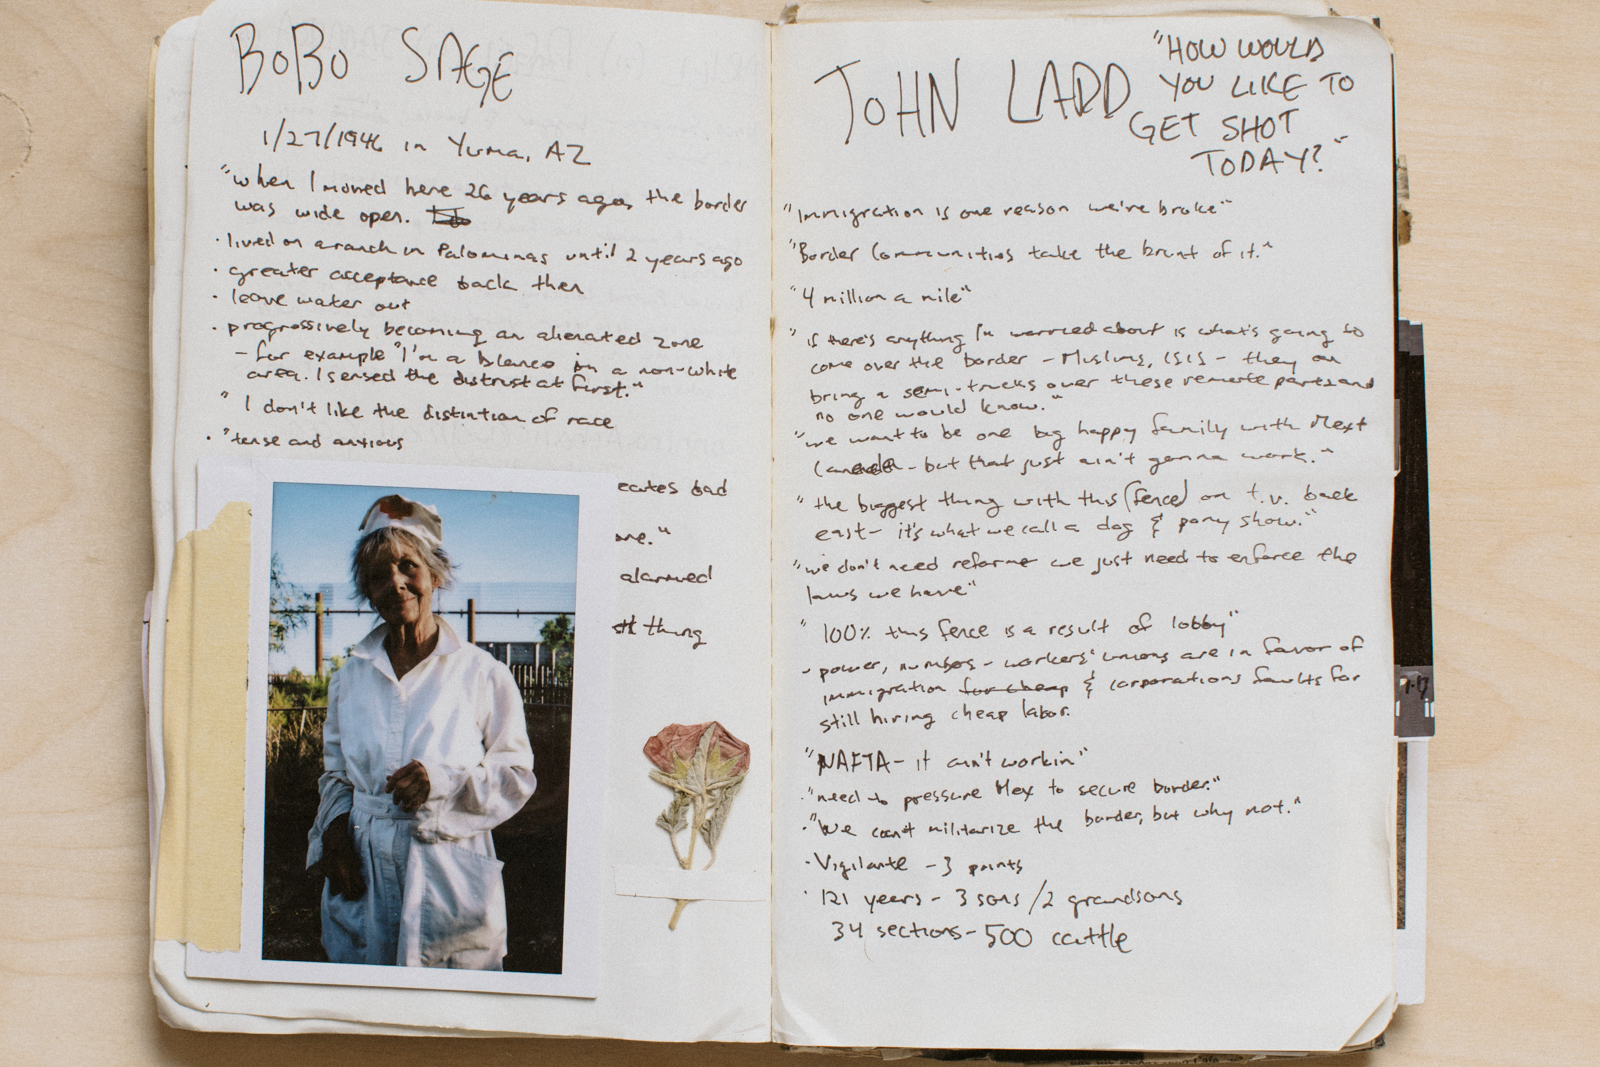 BOBO SAGE
1/27/1946 in Yuma, AZ
"when I moved here 26 years ago, the border
was wide open.
· lived on a ranch in Palominas until 2 years ago
· greater acceptance back then
· leave water out
· progressively becoming an alienated zone
- for example "I'm a blanco in a non-white
area. I sensed the distrust at first."
" I don't like the distintion of race
· "tense and anxious
ecutes bad
me."
alarmed
thing
JOHN LADD
"HOW WOULD
YOU LIKE TO
GET SHOT
TODAY?"
"Immigration is one reason we're broke"
"Border Communities take the brunt of it."
"4 million a mile"
"if there's anything I'm worried about is what's going to
come over the border - Muslims, ISIS - they can
bring a semi-trucks over these remote parts and
no one would know."
"we want to be one big happy family with Mext
Canada - but that just ain't gonna work."
"the biggest thing with this (fence) on t.v. back
east - it's what we call a dog & pony show."
"we don't need reforme we just need to enforce the
laws we have"
" 100% this fence is a result of lobby"
- power, numbers - workers' unions are in favor of
immigration for cheap & corporations faults for
still hiring cheap labor.
"NAFTA - it ain't workin"
· "need to pressure Mex to secure border."
· "We can't militarize the border, but why not."
· Vigilante - 3 points
· 121 years - 3 sons / 2 grandsons
34 sections - 500 cattle